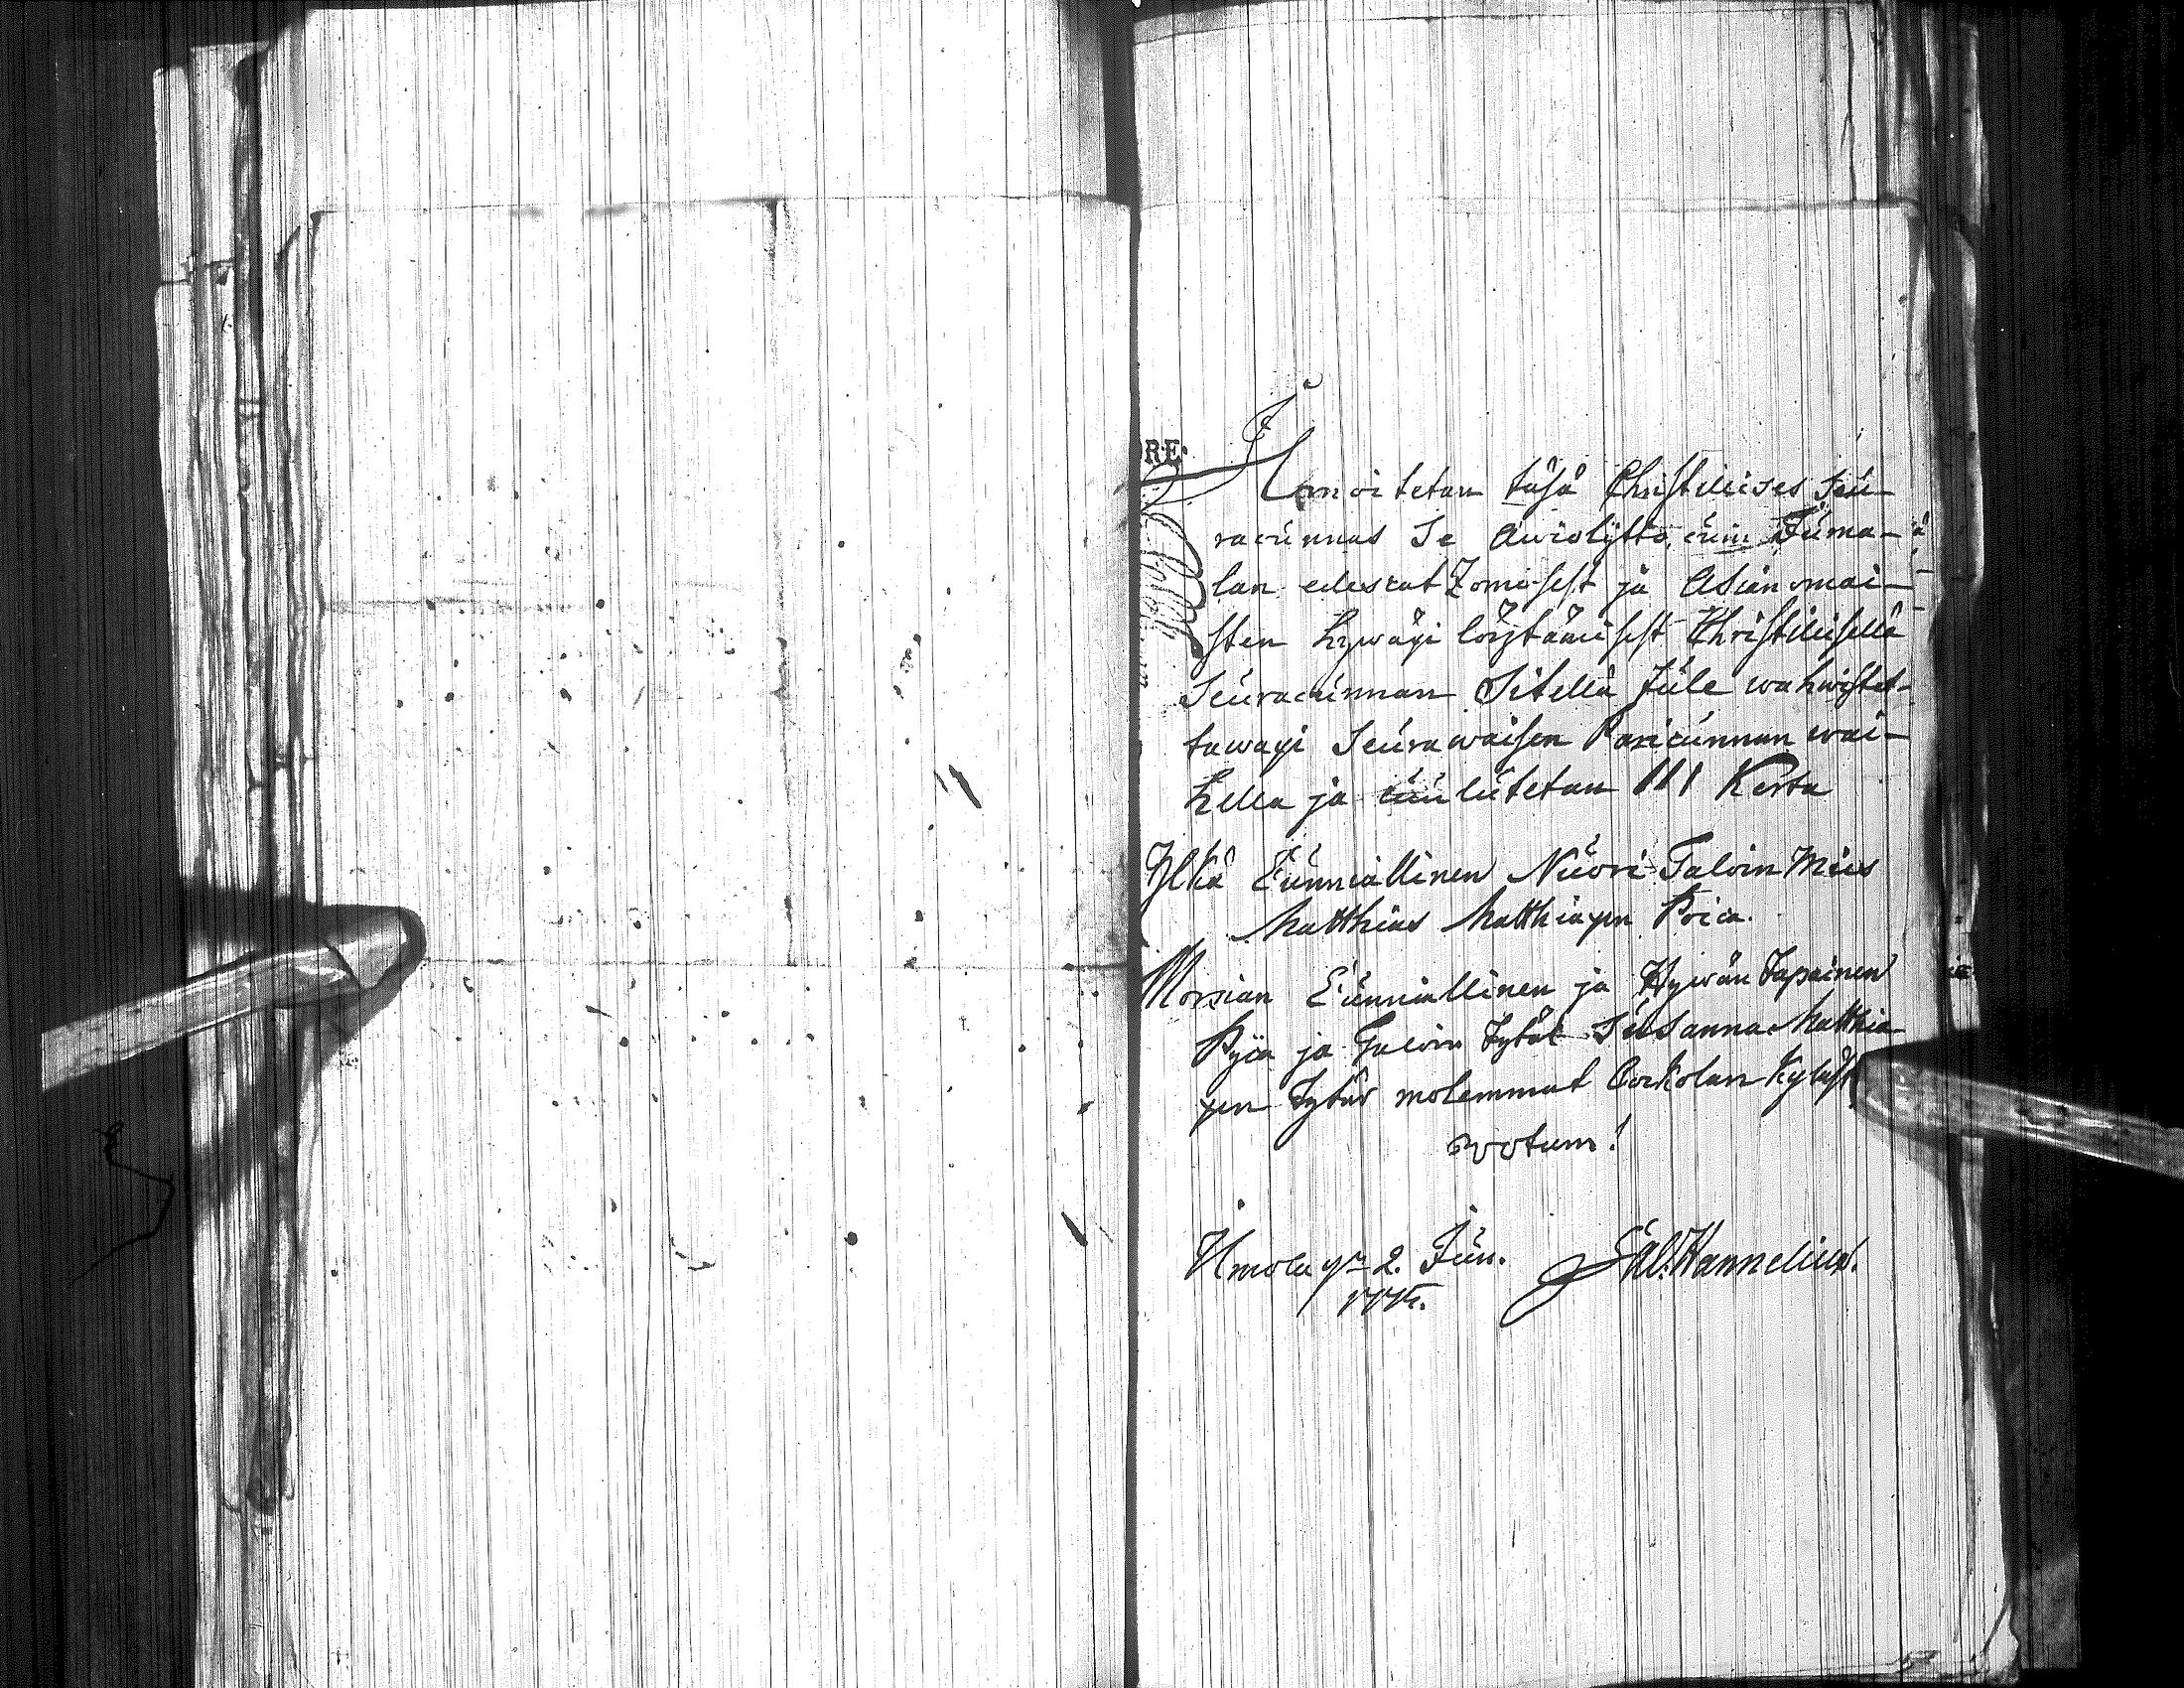 RE.
Ilmoitetan täsä Christilises Seu-
racunnas Se Awiolijtto, cuin Juma-
lan edescatzomisest ja Asianomai-
sten hywäxi löytämisest Christilisellä
Seuracunnan Sitellä tule wahwistet-
tawaxi Seurawaisen Pariscunnan wäi-
hellä ja cuulutetan III Kerta
Ylkä Cunniallinen Nuori Taloin Mies
Matthias Matthiaxen Poica.
Morsian Cunniallinen ja Hywän Tapainen
Pijca ja Taloin Tytär Susanna Matthia-
xen Tytär molemmat Cockolan Kyläst
votum!
2. Jun.
Hannelius.